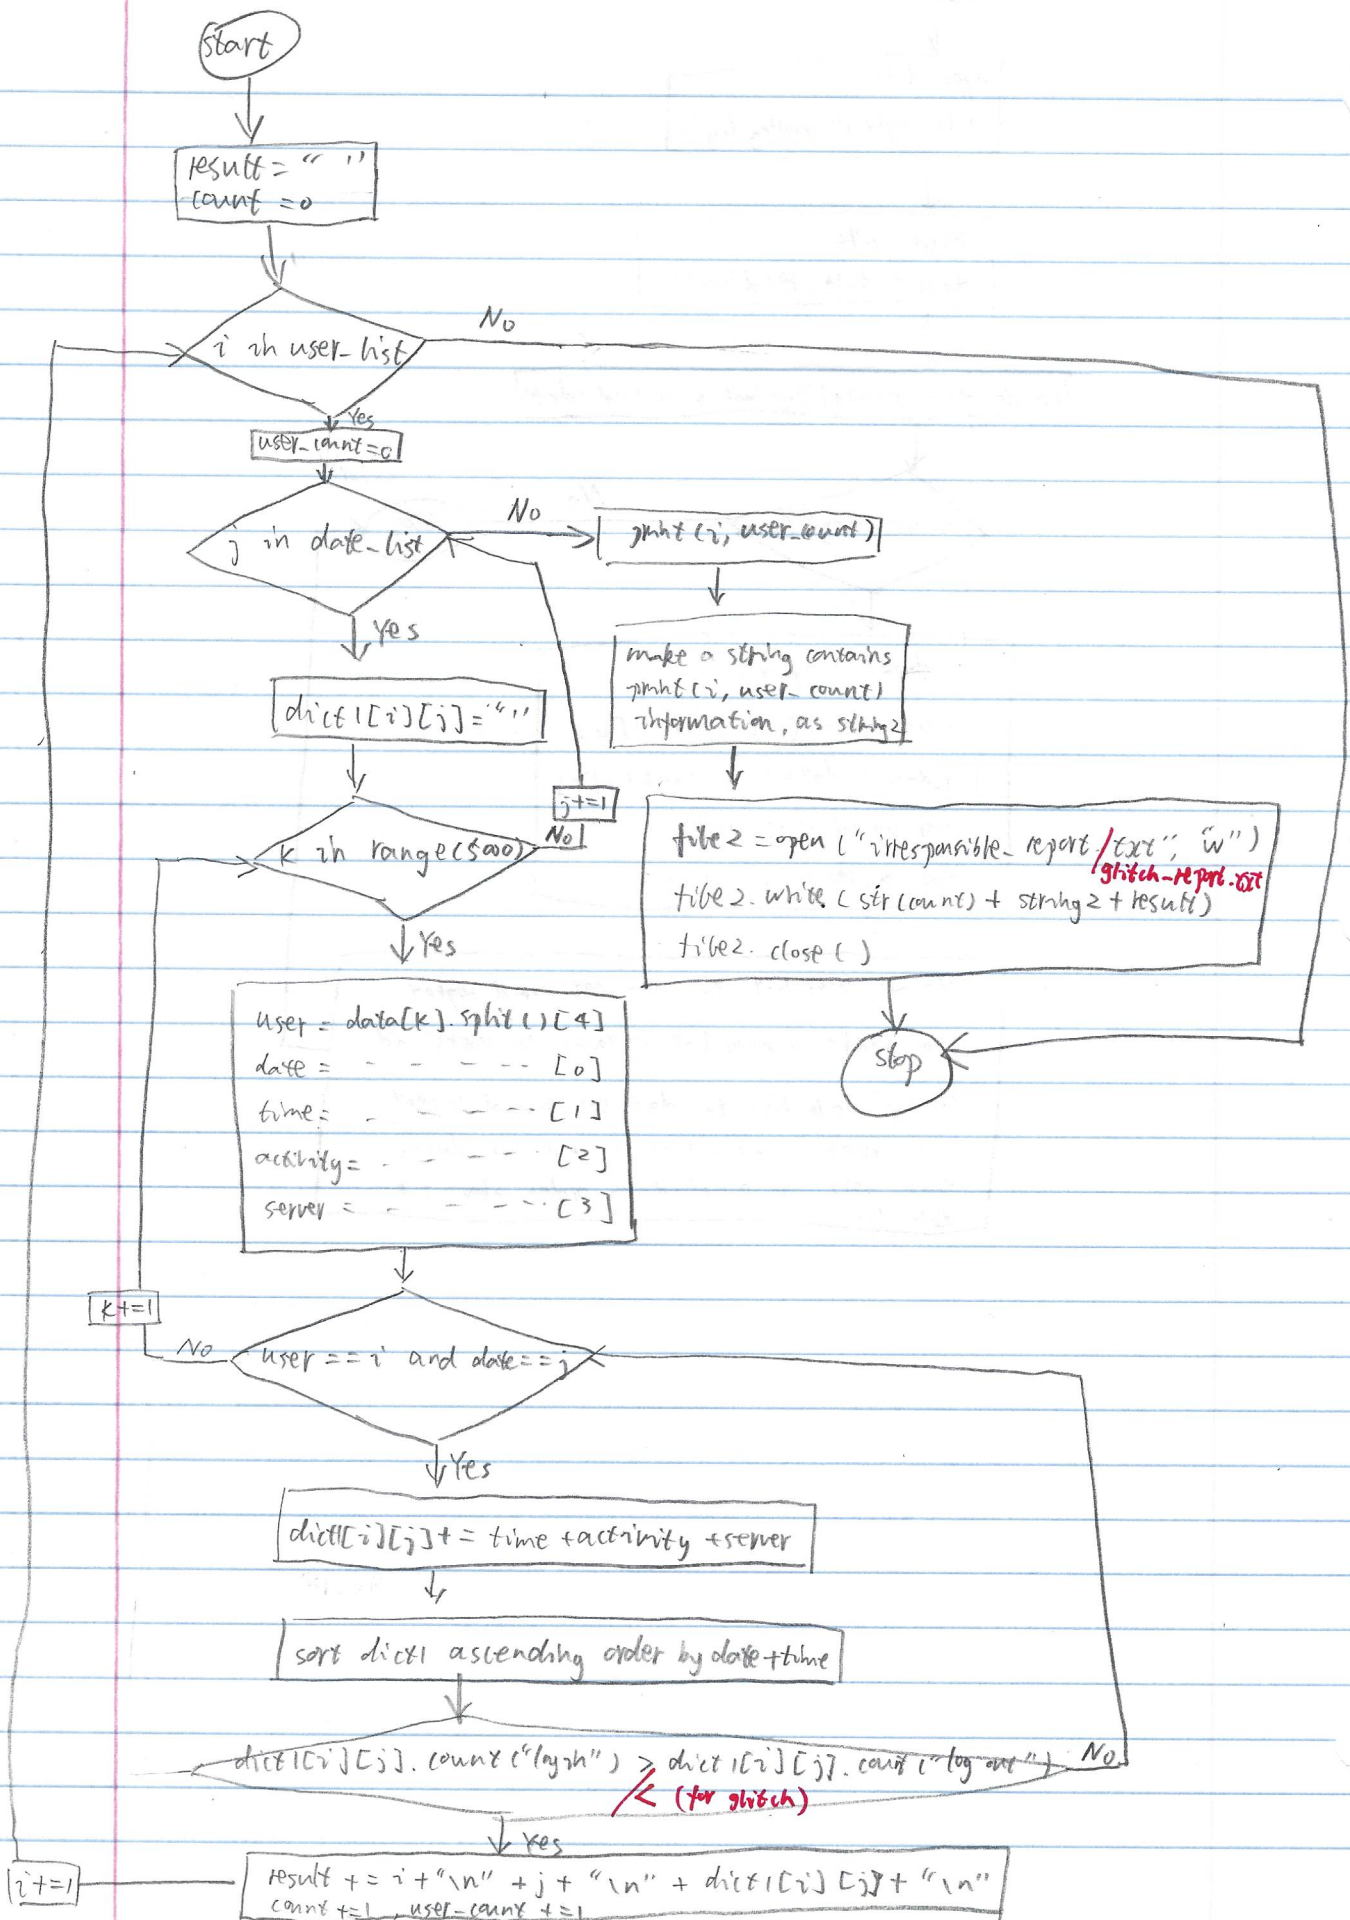 start
result = “ ”
count = 0
i in user_list
No
Yes
user_count=0
j in date_list
No
print(i, user_count)
Yes
make a string contains
print(i, user_count)
information, as string2
dict1[i][j]=“”
j+=1
k in range(5000)
No
file2 = open("irresponsible_report/txt", "w")
glitch_report.txt
file2.write(str(count) + string2 + result)
file2.close()
Yes
user = data[k].split()[4]
date = - - - -- [0]
time= - - - --- [1]
activity= - - - -- [2]
server = - - - -- [3]
stop
k+=1
No
user == i and date==j
Yes
dict1[i][j]+= time+activity+server
sort dict1 ascending order by date+time
dict1[i][j].count("login") > dict1[i][j].count("log out")
No
/< (for glitch)
Yes
i+=1
result += i+"\n" + j + "\n" + dict1[i][j]+ "\n"
count +=1, user_count +=1